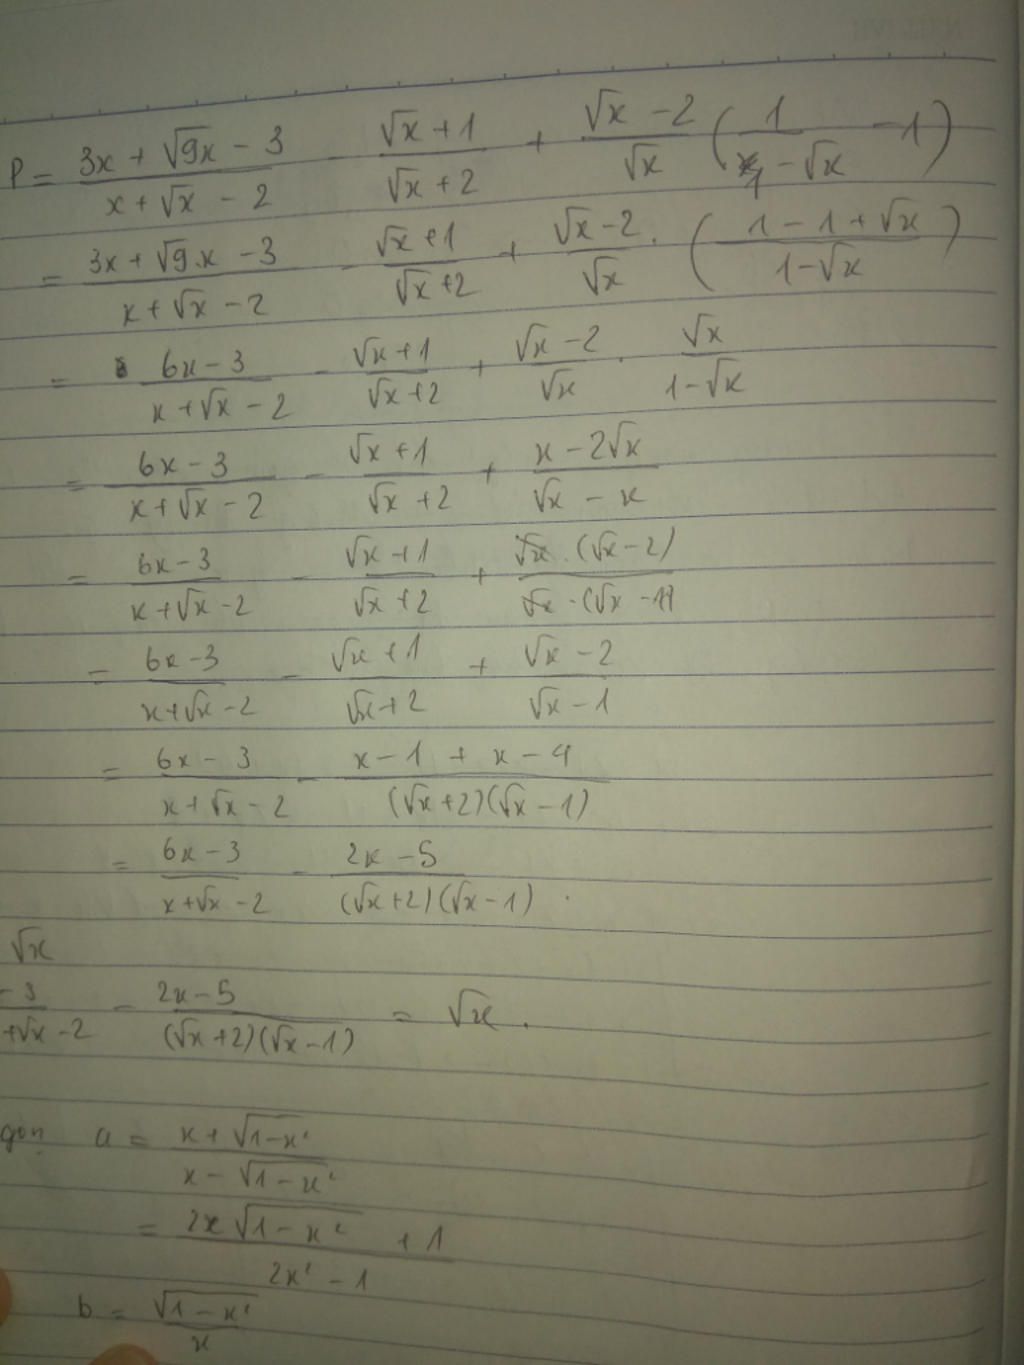 P = \frac{3x + \sqrt{9x} - 3}{x + \sqrt{x} - 2} - \frac{\sqrt{x} + 1}{\sqrt{x} + 2} + \frac{\sqrt{x} - 2}{\sqrt{x}} \left( \frac{1}{1 - \sqrt{x}} - 1 \right)
= \frac{3x + \sqrt{9}.x - 3}{x + \sqrt{x} - 2} - \frac{\sqrt{x} + 1}{\sqrt{x} + 2} + \frac{\sqrt{x} - 2}{\sqrt{x}} . \left( \frac{1 - 1 + \sqrt{x}}{1 - \sqrt{x}} \right)
= \frac{6x - 3}{x + \sqrt{x} - 2} - \frac{\sqrt{x} + 1}{\sqrt{x} + 2} + \frac{\sqrt{x} - 2}{\sqrt{x}} . \frac{\sqrt{x}}{1 - \sqrt{x}}
= \frac{6x - 3}{x + \sqrt{x} - 2} - \frac{\sqrt{x} + 1}{\sqrt{x} + 2} + \frac{x - 2\sqrt{x}}{\sqrt{x} - x}
= \frac{6x - 3}{x + \sqrt{x} - 2} - \frac{\sqrt{x} + 1}{\sqrt{x} + 2} + \frac{\sqrt{x} . (\sqrt{x} - 2)}{\sqrt{x} . (\sqrt{x} - 1)}
= \frac{6x - 3}{x + \sqrt{x} - 2} - \frac{\sqrt{x} + 1}{\sqrt{x} + 2} + \frac{\sqrt{x} - 2}{\sqrt{x} - 1}
= \frac{6x - 3}{x + \sqrt{x} - 2} - \frac{x - 1 + x - 4}{(\sqrt{x} + 2)(\sqrt{x} - 1)}
= \frac{6x - 3}{x + \sqrt{x} - 2} - \frac{2x - 5}{(\sqrt{x} + 2)(\sqrt{x} - 1)} .
\sqrt{x}
\frac{- 3}{+ \sqrt{x} - 2} - \frac{2x - 5}{(\sqrt{x} + 2)(\sqrt{x} - 1)} = \sqrt{x} .
gọn a = \frac{x + \sqrt{1 - x^2}}{x - \sqrt{1 - x^2}}
= \frac{2x \sqrt{1 - x^2} + 1}{2x^2 - 1}
b = \frac{\sqrt{1 - x^2}}{x}